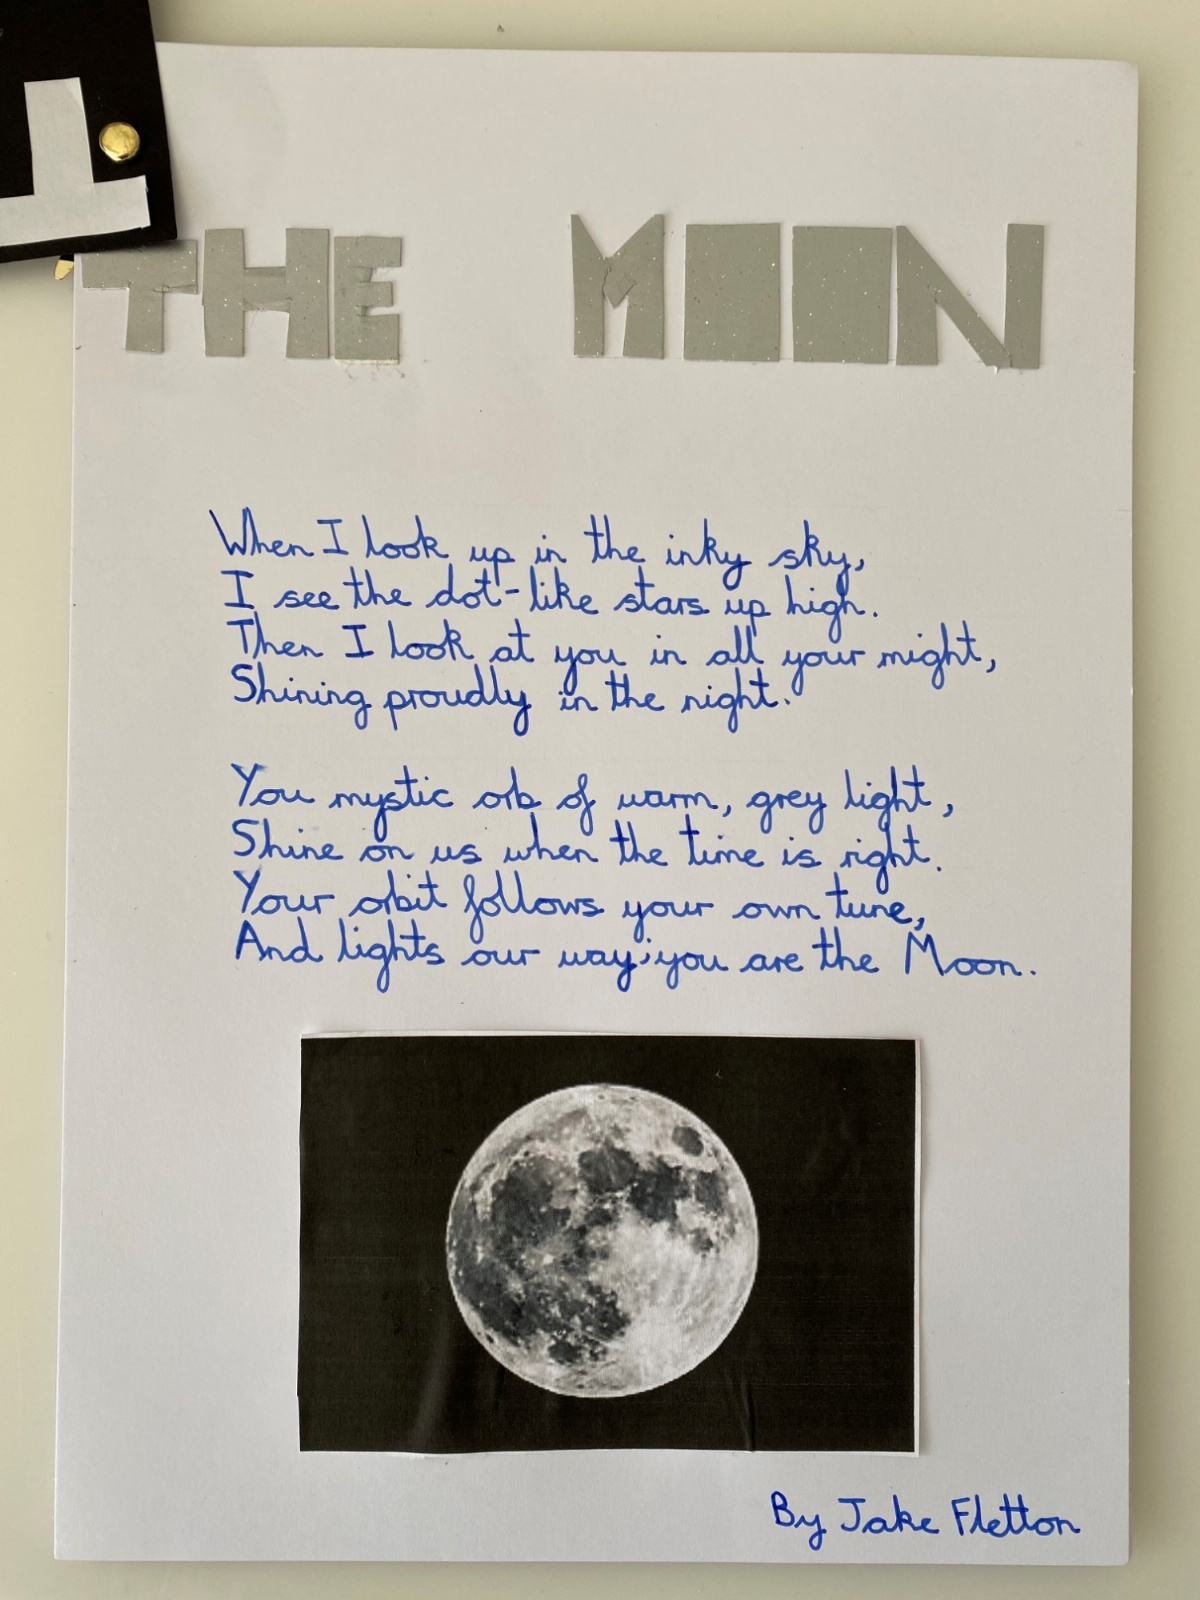 THE MOON
When I look up in the inky sky,
I see the dot-like stars up high.
Then I look at you in all your might,
Shining proudly in the night.
You mystic orb of warm, grey light,
Shine on us when the time is right.
Your orbit follows your own tune,
And lights our way; you are the Moon.
By Jake Fletton